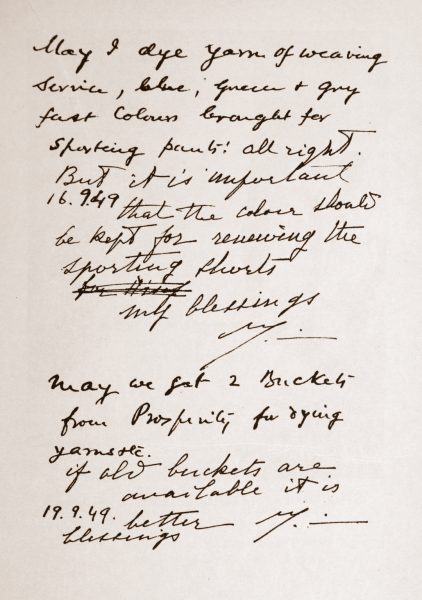 May I dye yarn of weaving
service, blue, green + gry
fast colours brought for
sporting pants! all right.
But it is important
16.9.49 that the colour should
be kept for renewing the
sporting shorts
my blessings
May we get 2 Buckets
from Prosperity for dying
yarns etc.
if old buckets are
available it is
19.9.49. better
blessings